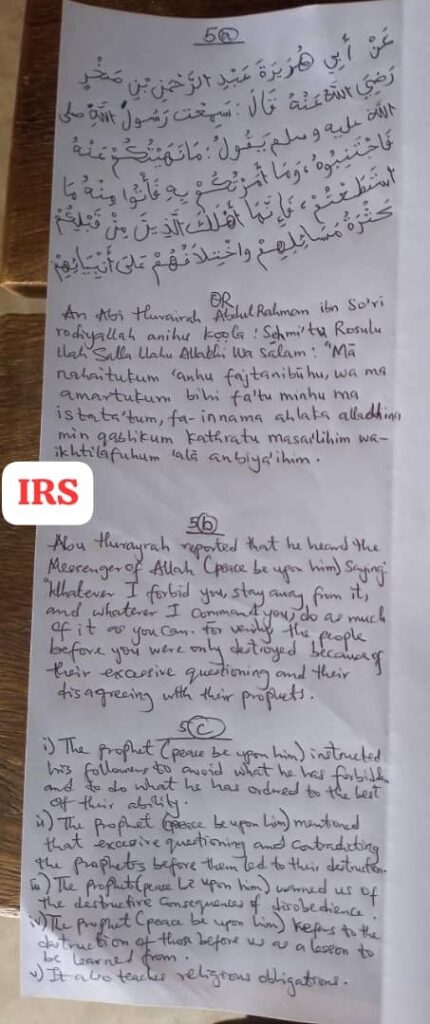 5(a)
عَنْ أَبِي هُرَيْرَةَ عَبْدِ الرَّحْمَنِ بْنِ صَخْرٍ
رَضِيَ اللهُ عَنْهُ قَالَ: سَمِعْتُ رَسُولَ اللهِ صلى
الله عليه وسلم يَقُولُ: مَا نَهَيْتُكُمْ عَنْهُ
فَاجْتَنِبُوهُ، وَمَا أَمَرْتُكُمْ بِهِ فَأْتُوا مِنْهُ مَا
اسْتَطَعْتُمْ، فَإِنَّمَا أَهْلَكَ الَّذِينَ مِنْ قَبْلِكُمْ
كَثْرَةُ مَسَائِلِهِمْ وَاخْتِلَافُهُمْ عَلَى أَنْبِيَائِهِمْ
OR
An Abi Hurairah AbdulRahman ibn So'ri
rodiyallah anihu Koola: Sehmi'tu Rosulu
llah Salla llahu Allabhi Wa Salam: "Mā
nahaitukum 'anhu fajtanibūhu, wa ma
amartukum bihi fa'tu minhu ma
istata'tum, fa-innama ahlaka alladhina
min qablikum kathratu masa'ilihim wa-
ikhtilafuhum 'alā anbiya'ihim.
IRS
5(b)
Abu Hurayrah reported that he heard the
Messenger of Allah (peace be upon him) Saying:
"Whatever I forbid you, stay away from it,
and whatever I command you, do as much
of it as you can. For verily the people
before you were only destroyed because of
their excessive questioning and their
disagreeing with their prophets.
5(c)
i) The prophet (peace be upon him) instructed
his followers to avoid what he has forbidden
and to do what he has ordered to the best
of their ability.
ii) The prophet (peace be upon him) mentioned
that excessive questioning and contradicting
the prophets before them led to their destruction.
iii) The prophet (peace be upon him) warned us of
the destructive consequences of disobedience.
iv) The prophet (peace be upon him) Refers to the
destruction of those before us as a lesson to
be learned from.
v) It also teaches religious obligations.